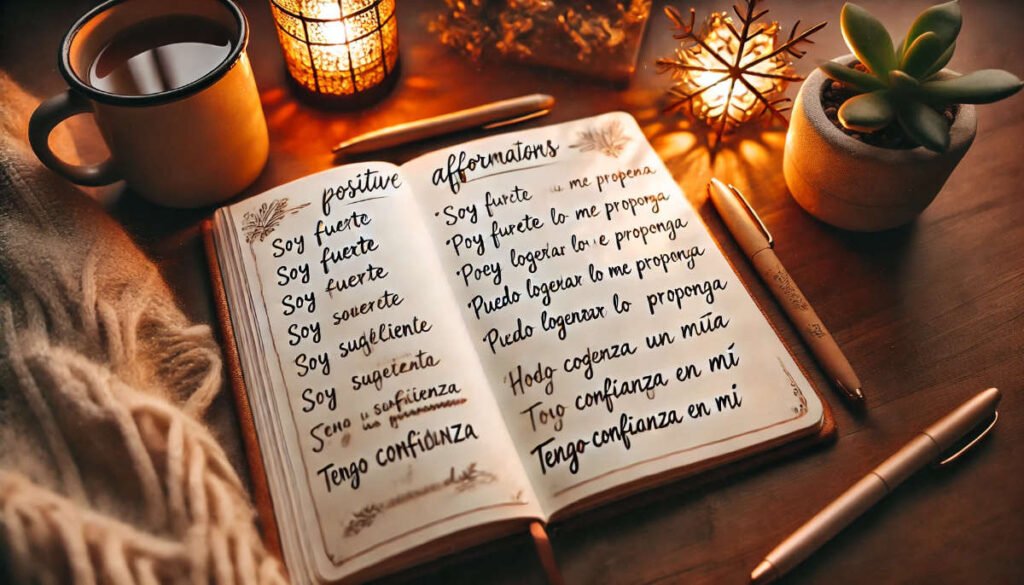 positive
Soy fuerte
Soy fuerte
Soy fuerte
Soy souerte
Soy sugéliente
Soy sugeciente
suficienza
Tengo confidunza
afformatons
·Soy furcte me propena
·Poy furete lo me proponga
·Poey logerar lo e proponga
·Puedo logerar lo me proponga
Puedo logenzar lo proponga
Hodg codgenza un múa
Toyo confianza en mí
Tengo confianza en mi